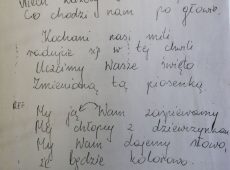 Co chodzi nam po głowie.
Kochani nasi mili
radujcie się w tej chwili
Uczcimy Wasze święto
Zmienioną tą piosenką.
REF My ją Wam zaśpiewamy
My chłopcy z dziewczynkami
My Wam dajemy słowo,
że będzie kolorowo.